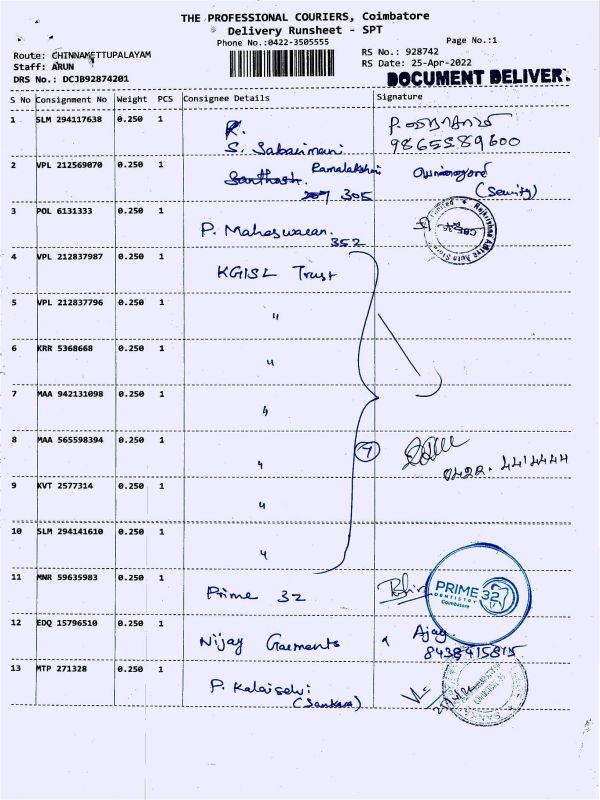 THE PROFESSIONAL COURIERS, Coimbatore
Delivery Runsheet - SPT
Phone No.:0422-3505555
Page No.:1
Route: CHINNAMETTUPALAYAM
RS No.: 928742
Staff: ARUN
RS Date: 25-Apr-2022
DRS No.: DCJB92874201
DOCUMENT DELIVER.
S No Consignment No Weight PCS Consignee Details Signature
1 SLM 294117638 0.250 1
S. Sabarimani
9865589600
2 VPL 212569070 0.250 1 Ramalakshmi
Santhosh
207 305
(Security)
3 POL 6131333 0.250 1
P. Maheswaran
352
4 VPL 212837987 0.250 1 KGISL Trust
5 VPL 212837796 0.250 1 "
6 KRR 5368668 0.250 1 "
7 MAA 942131098 0.250 1 "
8 MAA 565598394 0.250 1 "
7
0422-4414444
9 KVT 2577314 0.250 1 "
10 SLM 294141610 0.250 1 "
11 MNR 59635983 0.250 1 Prime 32
PRIME 32
DENTISTRY
Coimbatore
12 EDQ 15796510 0.250 1 Nijay Garments
Ajay
8438415815
13 MTP 271328 0.250 1 P. Kalaiselvi
(Sankara)